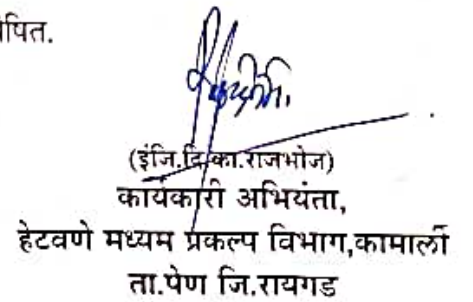 पित.
(इंजि.दि.का.राजभोज)
कार्यकारी अभियंता,
हेटवणे मध्यम प्रकल्प विभाग,कामार्ली
ता.पेण जि.रायगड